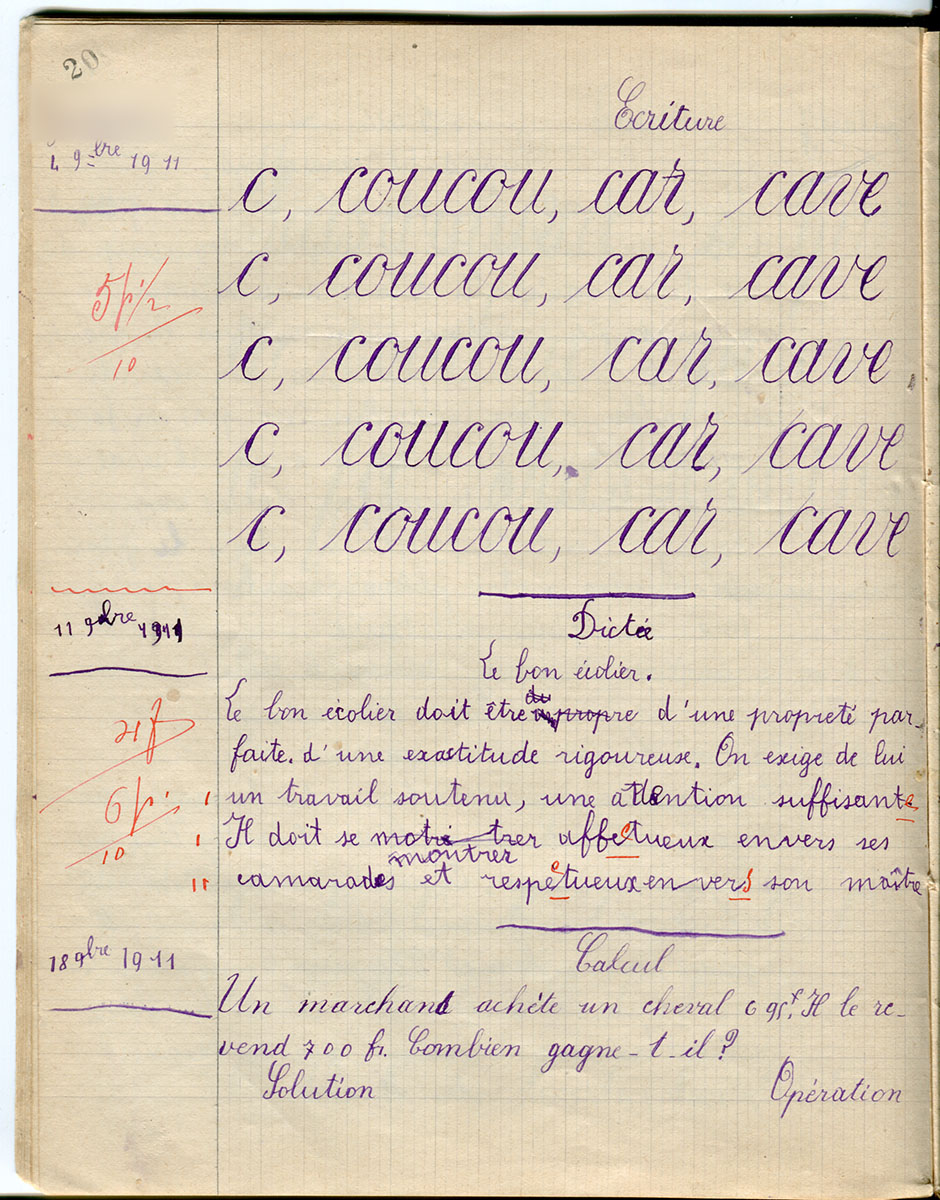 20
Ecriture
4 9=bre 1911
c, coucou, car, cave
c, coucou, car, cave
5p 1/2
10
c, coucou, car, cave
c, coucou, car, cave
c, coucou, car, cave
11 9bre 1911
Dictée
Le bon écolier.
Le bon écolier doit être propre d'une propreté par-
faite. d'une exactitude rigoureuse. On exige de lui
21f
6p.
10
un travail soutenu, une attention suffisante
Il doit se motri trer affectueux envers ses
montrer
camarades et respectueux envers son maître
18 9bre 1911
Calcul
Un marchand achète un cheval 695f. Il le re-
vend 700 fr. Combien gagne-t-il?
Solution Opération